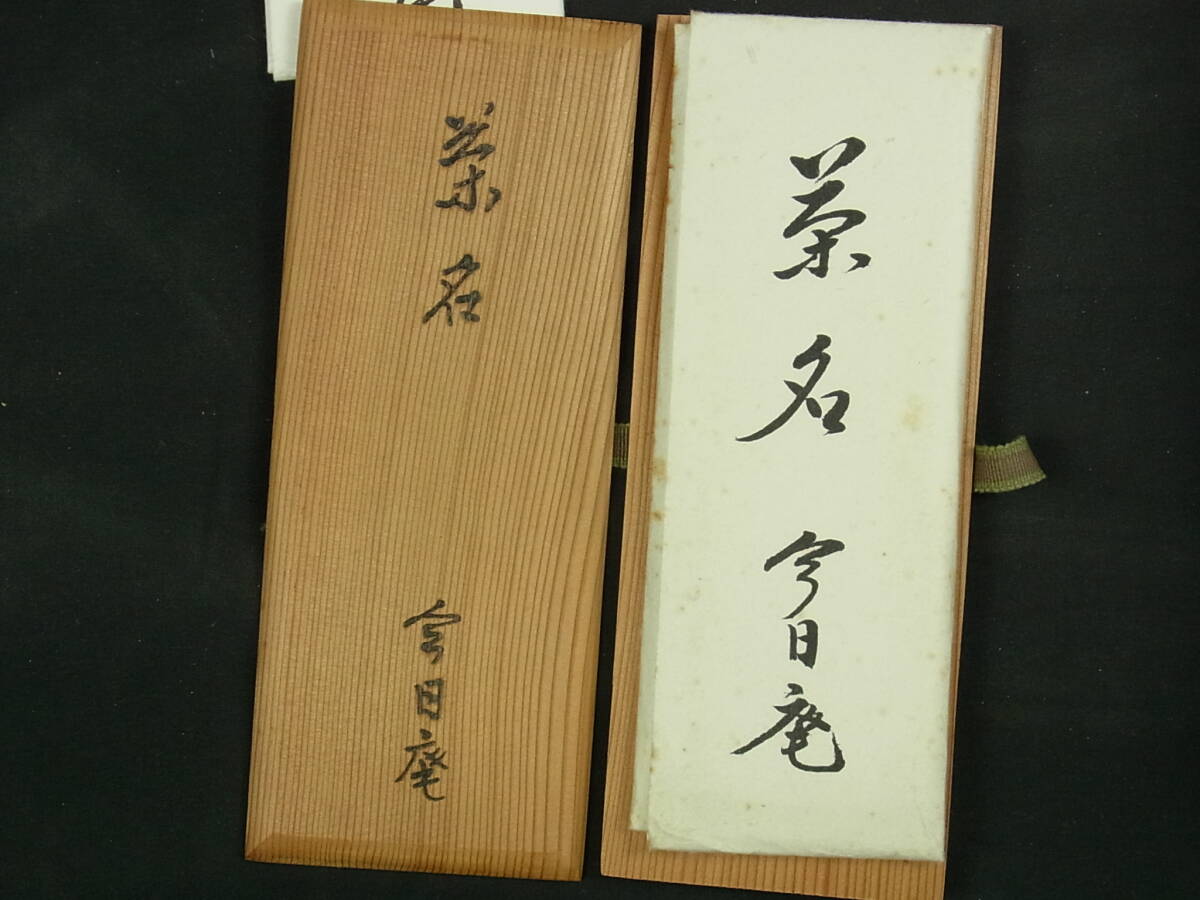 茶名
今日庵
茶名
今日庵